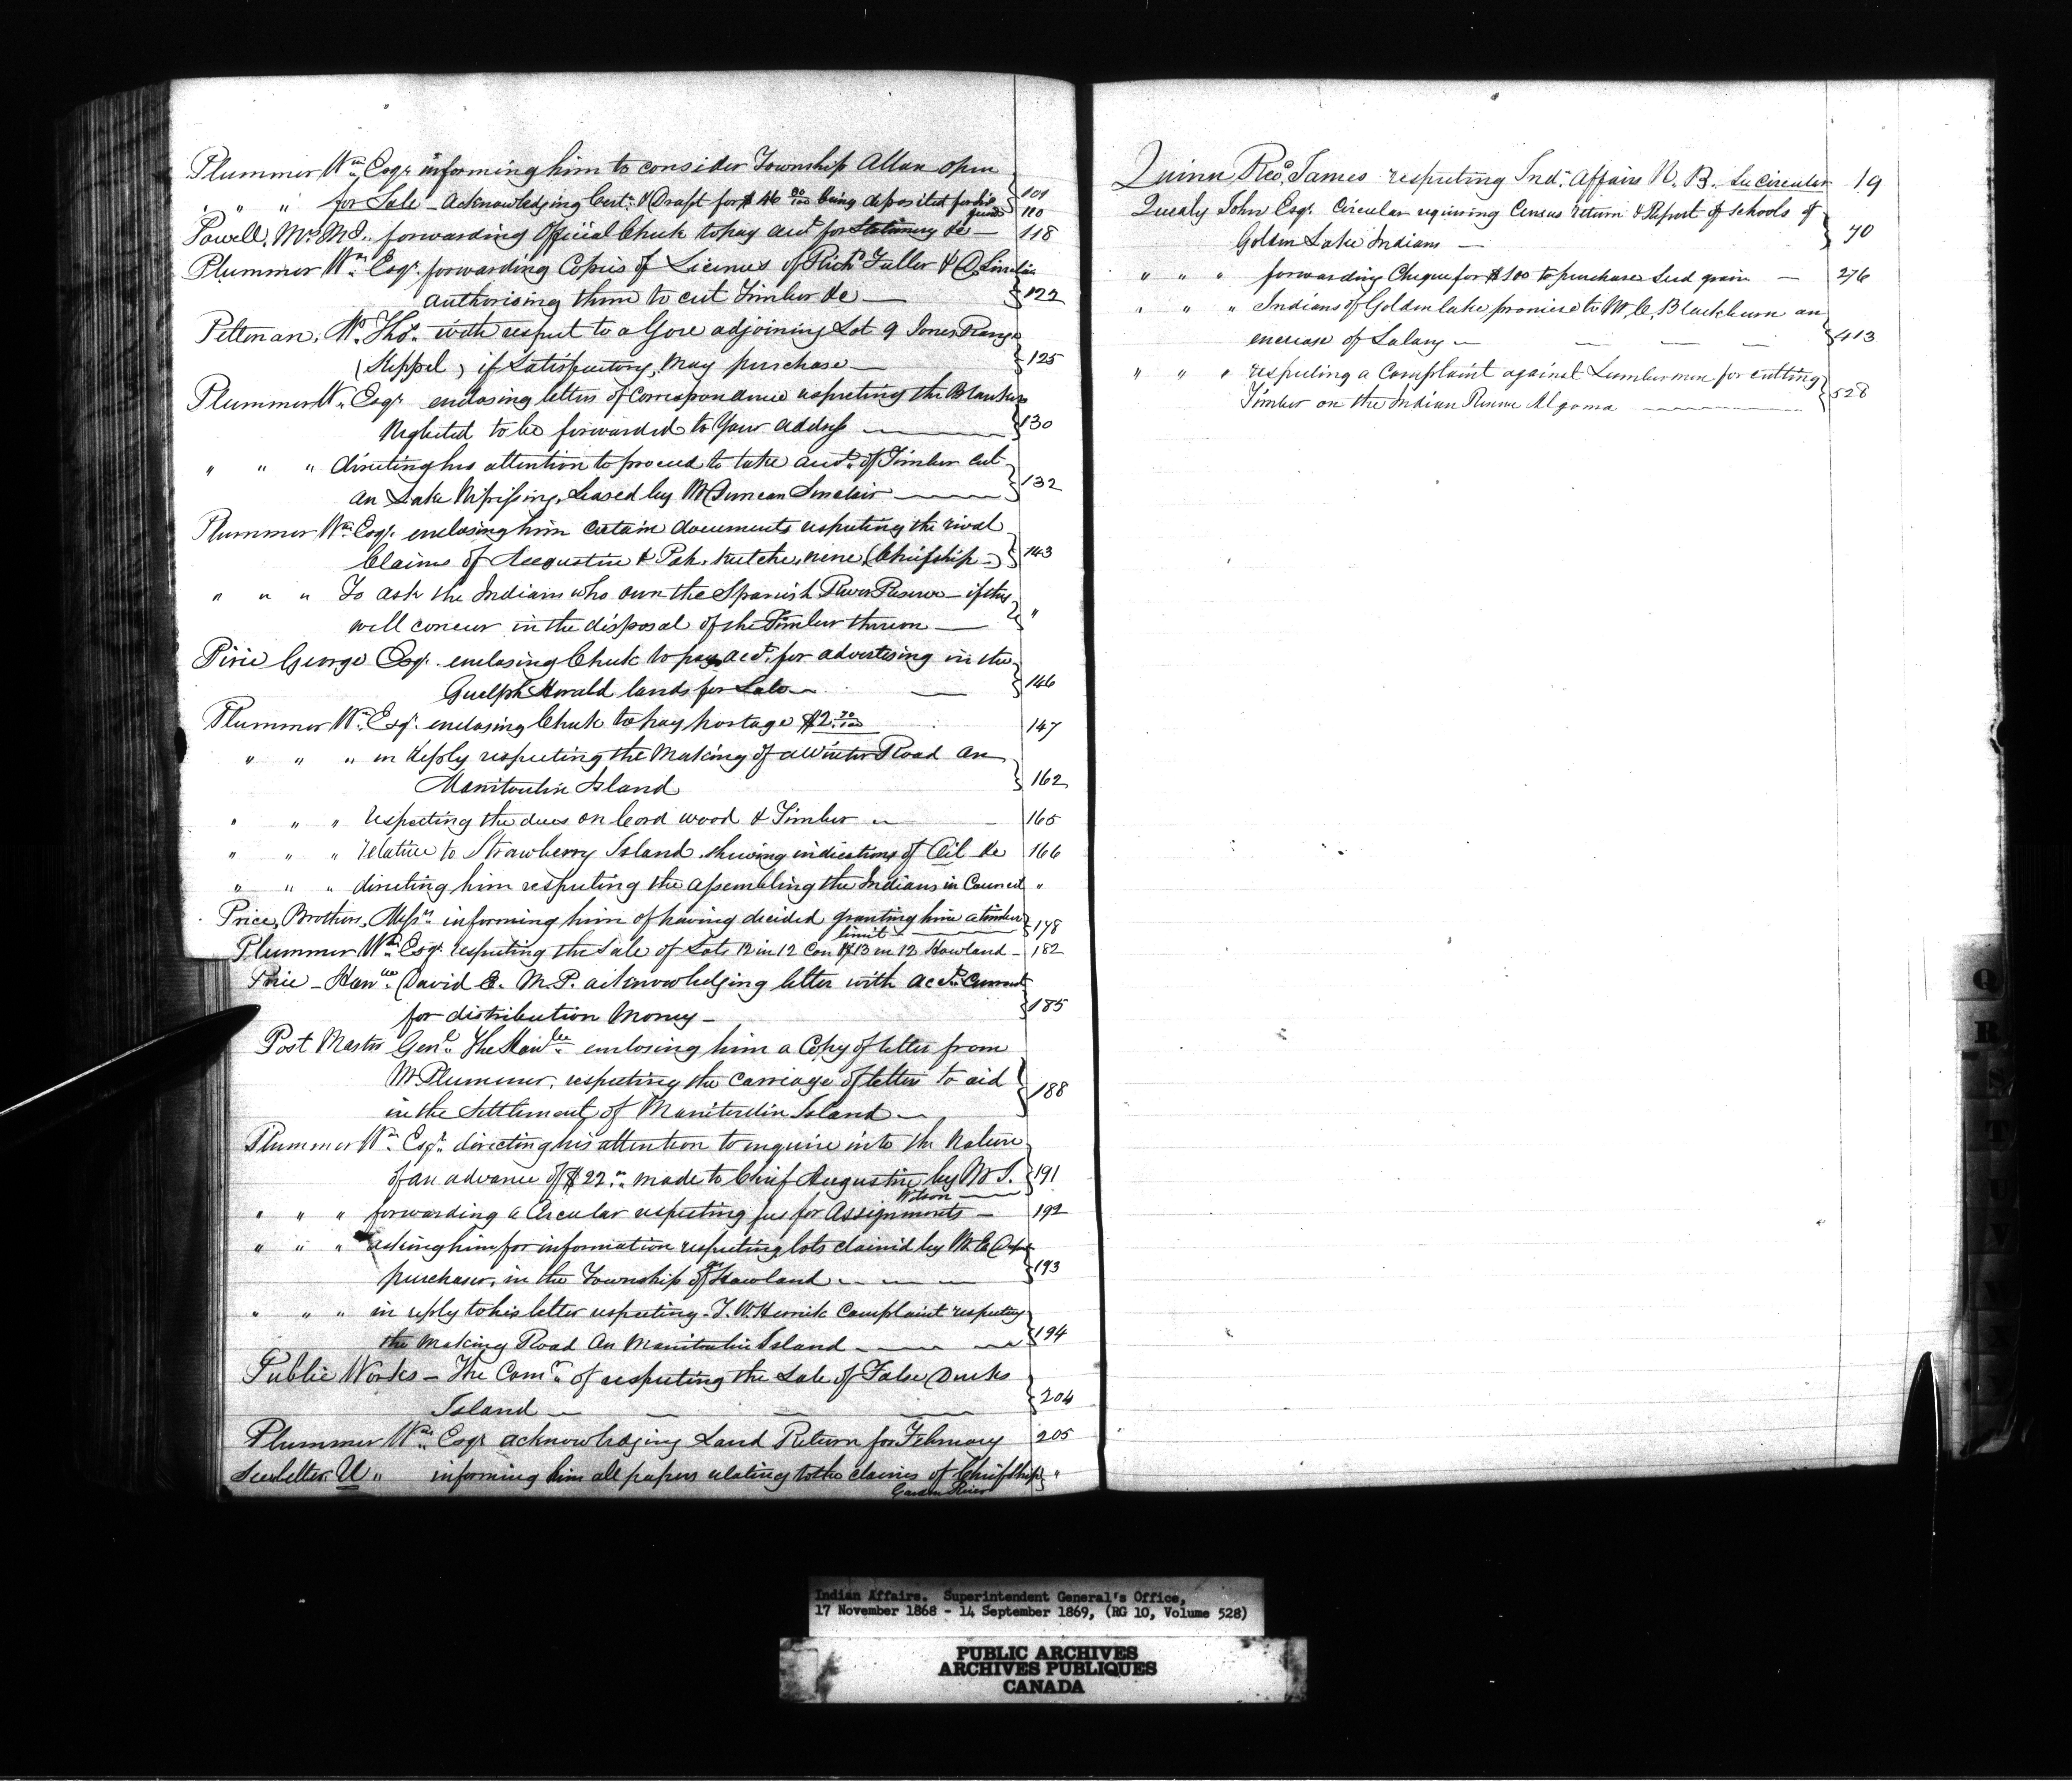 Plummer Wm Esqr informing him to consider Township Allan open
for Sale - 109
" " " Acknowledging Cert. & Draft for $46 00/100 being deposited for his fund 110
Powell, Mr M.D. forwarding Official Check to pay acct for Stationery &c — 118
Plummer Wm Esqr forwarding Copies of Licenses of Richd Fuller & D. Sinclair
authorising them to cut Timber &c — 122
Pettman, Mr Thos. with respect to a Gore adjoining Lot 9 Jones Range
(Keppel) if Satisfactory, may purchase — 125
Plummer W. Esqr enclosing letters of Correspondence respecting the Blankets
Neglected to be forwarded to Your address — 130
" " " directing his attention to proceed to take acct. of Timber cut
on Lake Nipissing, Leased by Mr Duncan Sinclair — 132
Plummer Wm Esqr. enclosing him certain documents respecting the rival
Claims of Augustin & (Chiefship) 143
" " " To ask the Indians who own the Spanish River Reserve - if they
will concur in the disposal of the Timber thereon — "
Pirie George Esqr. enclosing Check to pay acct. for advertising in the
Guelph Herald lands for Sale — 146
Plummer Wm. Esqr. enclosing Check to pay postage $2 70/100 147
" " " in Reply respecting the Making of a Winter Road on
Manitoulin Island 162
" " " respecting the dues on Cord wood & Timber — 165
" " " relative to Strawberry Island, shewing indications of Oil &c 166
" " " directing him respecting the assembling the Indians in Council "
Price, Brothers, Messrs. informing him of having decided granting him a timber
limit — 178
Plummer Wm Esqr. respecting the Sale of Lots 12 in 12 Con & 13 in 12 Howland - 182
Price - Honble David E. M.P. acknowledging letter with acct. Current
for distribution Money — 185
Post Master Genl. The Honble enclosing him a Copy of letter from
Mr Plummer, respecting the carriage of letters to aid
in the Settlement of Manitoulin Island — 188
Plummer Wm Esqr. directing his attention to inquire into the Nature
of an advance of $22 made to Chief Augustin by Mr
Wilson — 191
" " " forwarding a Circular respecting fees for Assignments — 192
" " " asking him for information respecting lots claim'd by Mr
purchaser, in the Township of Howland — 193
" " " in reply to his letter respecting T. W. Herrick Complaint respecting
the Making Road on Manitoulin Island — 194
Public Works - The Comr. of respecting the Sale of False Ducks
Island — 204
Plummer Wm. Esqr acknowledging Land Return for February 205
See letter U " informing him all papers relating to the claims of Chiefship "
Garden River
Quinn, Revd. James respecting Ind. Affairs N. B. See Circular 19
Quealy John Esqr. Circular requiring Census return & Report of Schools of
Golden Lake Indians — 70
" " " forwarding Cheque for $100 to purchase Seed grain — 276
" " " Indians of Golden lake promise to Mr C. Blackburn an
increase of Salary — 413
" " " respecting a Complaint against Lumbermen for cutting
Timber on the Indian Reserve Algoma — 528
Q
R
S
T
U
V
W
X
Indian Affairs. Superintendent General's Office,
17 November 1868 - 14 September 1869, (RG 10, Volume 528)
PUBLIC ARCHIVES
ARCHIVES PUBLIQUES
CANADA